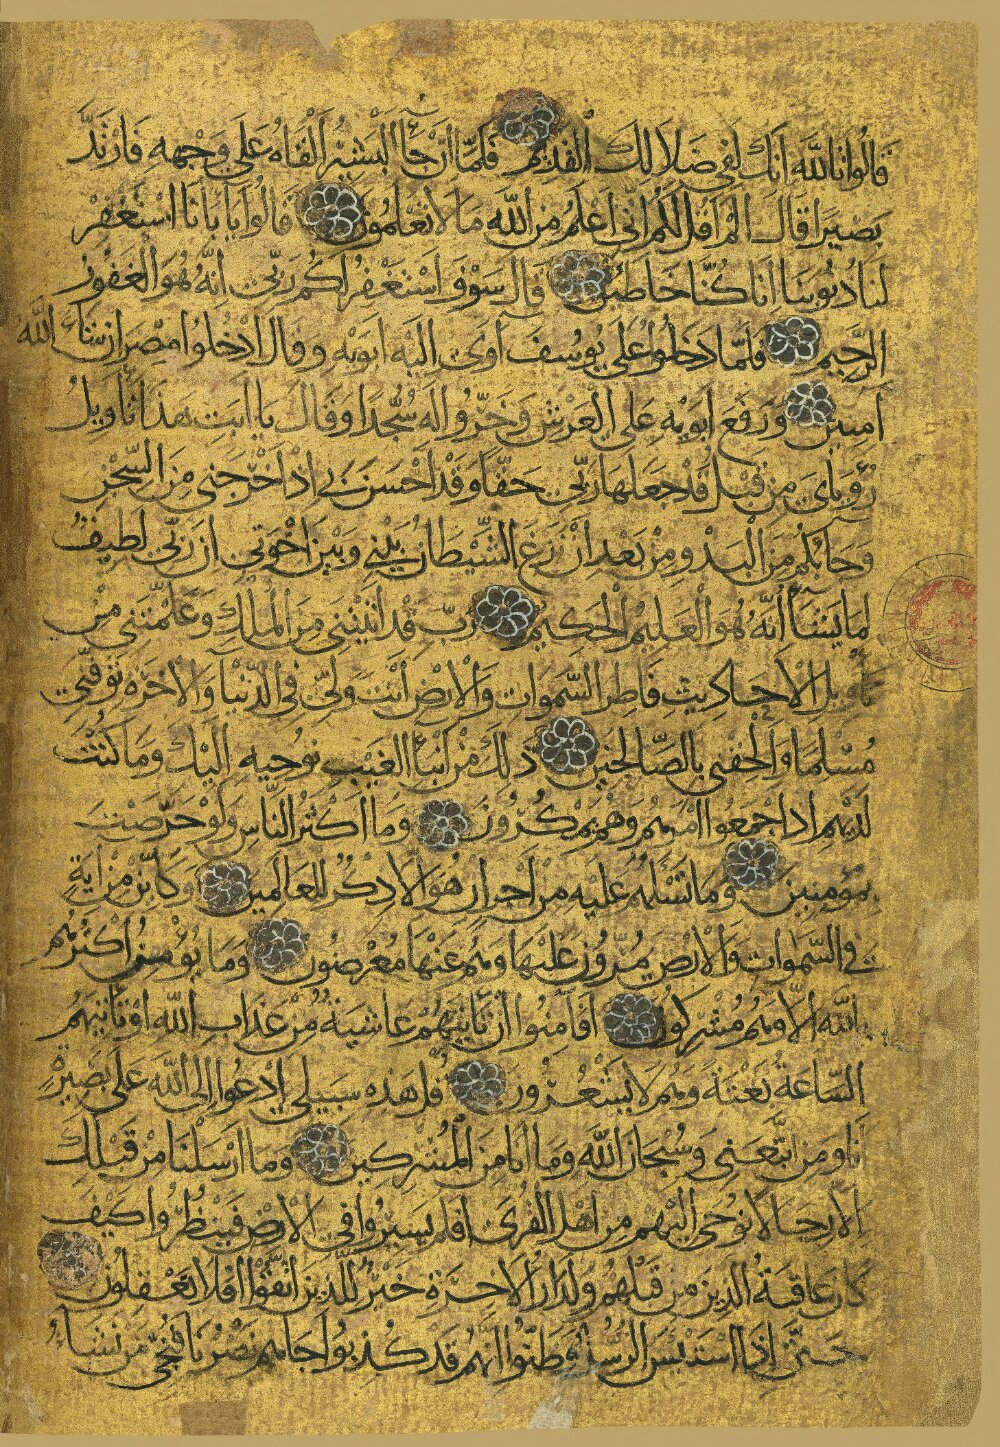 قالوا تالله انك لفي ضلالك القديم فلما ان جا البشير القاه على وجهه فارتد
بصيرا قال الم اقل لكم اني اعلم من الله ما لا تعلمون قالوا يا بانا استغفر
لنا ذنوبنا انا كنا خاطين قال سوف استغفر لكم ربي انه هو الغفور
الرحيم فلما دخلوا على يوسف آوى اليه ابويه وقال ادخلوا مصر ان شاء الله
آمنين ورفع ابويه على العرش وخروا له سجدا وقال يا ابت هذا تاويل
رؤياي من قبل قد جعلها ربي حقا وقد احسن بي اذ اخرجني من السجن
وجا بكم من البدو ومن بعد ان نزغ الشيطان بيني وبين اخوتي ان ربي لطيف
لما يشا انه هو العليم الحكيم رب قد اتيتني من الملك وعلمتني من
تاويل الاحاديث فاطر السموات والارض انت وليي في الدنيا والاخرة توفني
مسلما والحقني بالصالحين ذلك من انبا الغيب نوحيه اليك وما كنت
لديهم اذ اجمعوا امرهم وهم يمكرون وما اكثر الناس ولو حرصت
بمؤمنين وما تسئلهم عليه من اجر ان هو الا ذكر للعالمين وكاين من اية
في السموات والارض يمرون عليها وهم عنها معرضون وما يؤمن اكثرهم
بالله الا وهم مشركون افامنوا ان تاتيهم غاشية من عذاب الله او تاتيهم
الساعة بغتة وهم لا يشعرون قل هذه سبيلي ادعوا الى الله على بصيرة
انا ومن اتبعني وسبحان الله وما انا من المشركين وما ارسلنا من قبلك
الا رجالا نوحي اليهم من اهل القرى افلم يسيروا في الارض فينظروا كيف
كان عاقبة الذين من قبلهم ولدار الاخرة خير للذين اتقوا افلا تعقلون
حتى اذا استيئس الرسل وظنوا انهم قد كذبوا جاهم نصرنا فنجي من نشاء